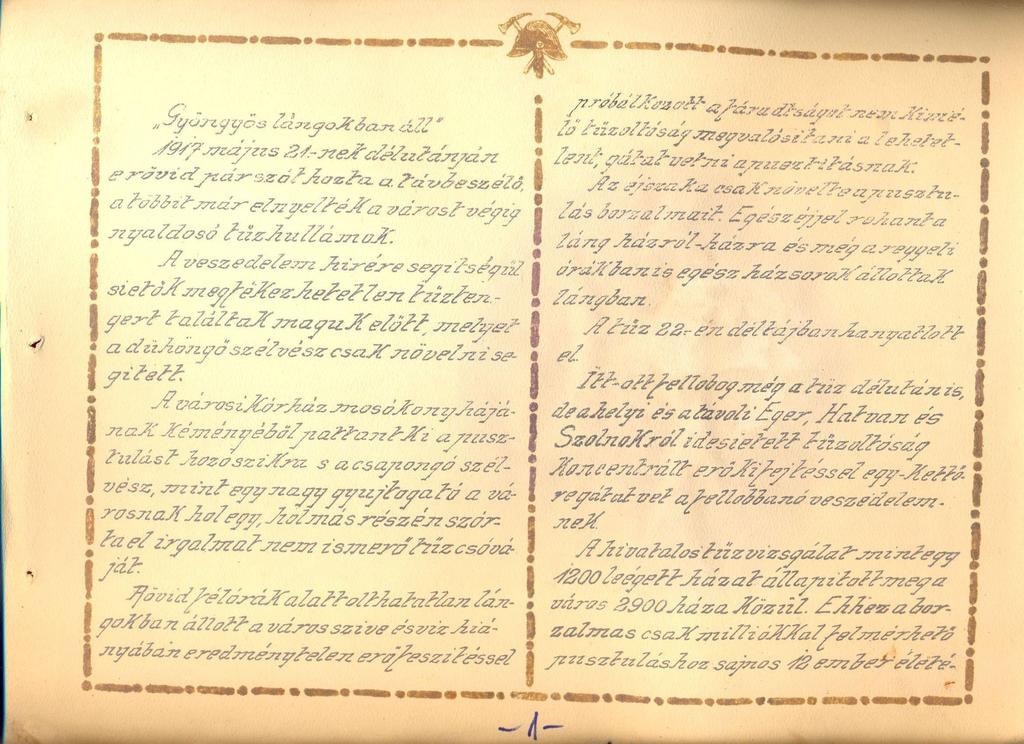 „Gyöngyös lángokban áll"
1917 május 21.-nek délutánján
e rövid pár szót hozta a távbeszélő,
a többit már elnyelték a várost végig
nyaldosó tűzhullámok.
A veszedelem hirére segitségül
sietők megfékezhetetlen tűzten-
gert találtak maguk előtt, melyet
a dühöngő szélvész csak növelni se-
gitett.
A városi Kórház mosókonyhájá-
nak kéményéből pattant ki a pusz-
tulást hozó szikra s a csapongó szél-
vész, mint egy nagy gyujtogató a vá-
rosnak hol egy, hol más részén szór-
ta el irgalmat nem ismerő tűzcsóvá-
ját.
Rövid félórák alatt olthatatlan lán-
gokban állott a város szive és viz hiá-
nyában eredménytelen erőfeszitéssel
próbálkozott a fáradtságot nem kimé-
lő tűzoltóság megvalósitani a lehetet-
lent, gátat vetni a pusztitásnak.
Az éjszaka csak növelte a pusztu-
lás borzalmait. Egész éjjel rohant a
láng házról-házra és még a reggeli
órákban is egész házsorok állottak
lángban.
A tűz 22.-én déltájban hanyatlott
el.
Itt-ott fellobog még a tűz délután is,
de a helyi és a távoli Eger, Hatvan és
Szolnokról idesietett tűzoltóság
koncentrált erőkifejtéssel egy-kettő-
re gátat vet a fellobbanó veszedelem-
nek.
A hivatalos tűzvizsgálat mintegy
1200 leégett házat állapitott meg a
város 2900 háza közül. Ehhez a bor-
zalmas csak milliókkal felmérhető
pusztuláshoz sajnos 12 ember életé-
-1-